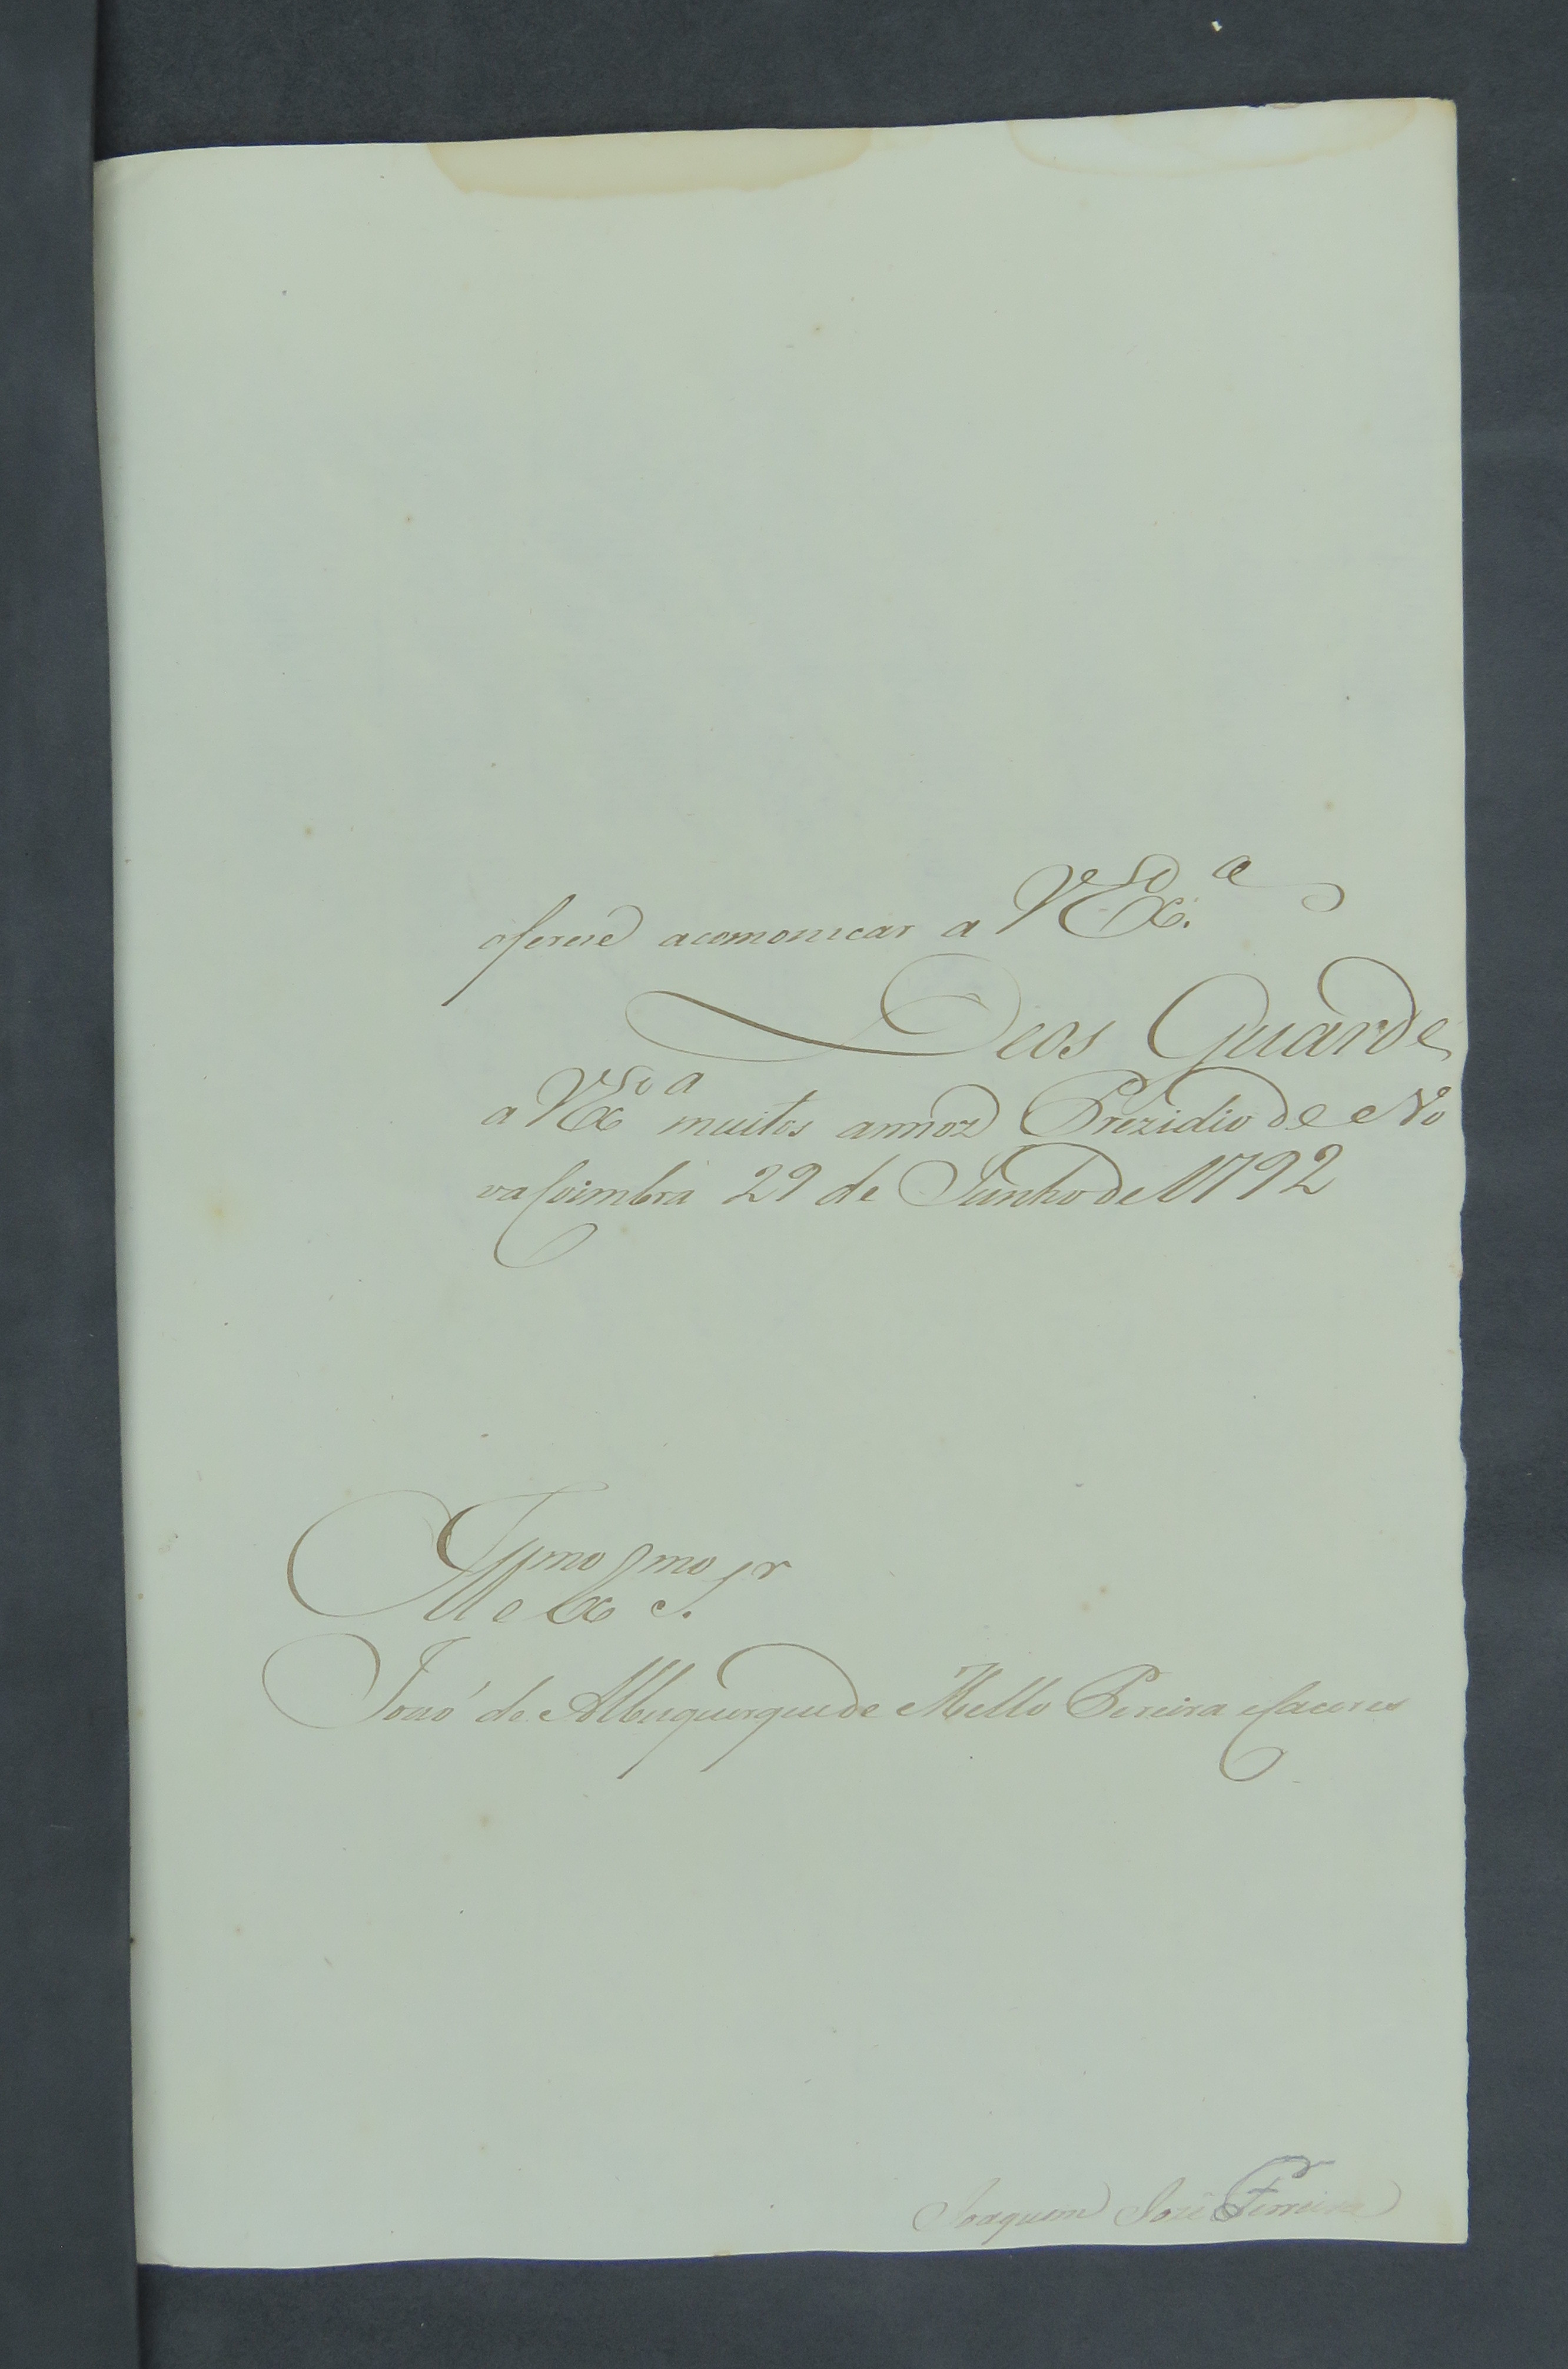 oferese acomonicar a VEx.ª
Deos Guarde
a VExª muitos annoz Prezidio de No
va Coimbra 29 de Junho de 1792
Illmo e Exmo Sr.
Joaõ de Albuquerque de Mello Pereira e Caceres
Joaquim José Ferreira